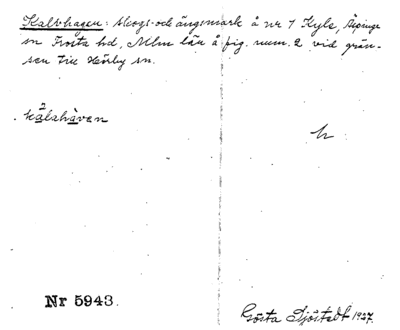 Kalvhagen: skogs- och ängsmark å nr 1 Kyls, Äspinge
sn Frosta hd, Mlm län å fig. num. 2 vid grän-
sen till Hörby sn.
kălshàvan
h
Nr 5943.
Gösta Sjöstedt 1927.